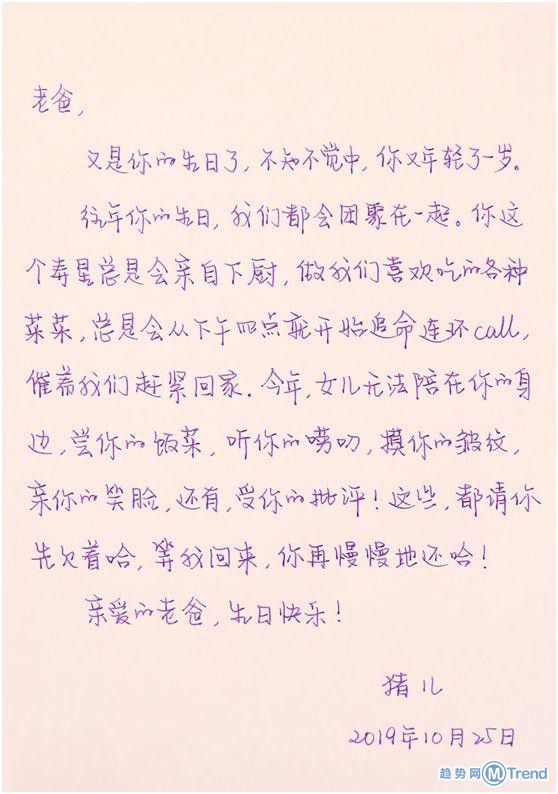 老爸，
又是你的生日了，不知不觉中，你又年轻了一岁。
往年你的生日，我们都会团聚在一起。你这
个寿星总是会亲自下厨，做我们喜欢吃的各种
菜菜，总是会从下午四点就开始追命连环call，
催着我们赶紧回家。今年，女儿无法陪在你的身
边，尝你的饭菜，听你的唠叨，摸你的皱纹，
亲你的笑脸，还有，受你的批评！这些，都请你
先欠着哈，等我回来，你再慢慢地还哈！
亲爱的老爸，生日快乐！
猪儿
2019年10月25日
趋势网 MTrend